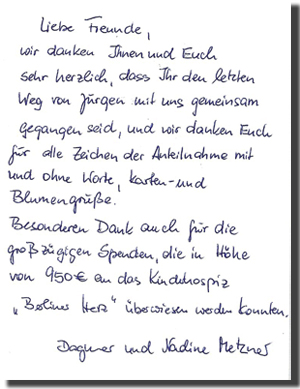 Liebe Freunde,
wir danken Ihnen und Euch
sehr herzlich, dass Ihr den letzten
Weg von Jürgen mit uns gemeinsam
gegangen seid, und wir danken Euch
für alle Zeichen der Anteilnahme mit
und ohne Worte, Karten- und
Blumengrüße.
Besonderen Dank auch für die
großzügigen Spenden, die in Höhe
von 950 € an das Kinderhospiz
„Berliner Herz“ überwiesen werden konnten.
Dagmar und Nadine Metzner